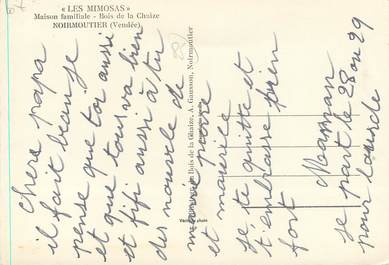 « LES MIMOSAS »
Maison familiale - Bois de la Chaize
NOIRMOUTIER (Vendée)
chers papa
il fait beau je
pense que toi aussi
et que tous va bien
et fifi aussi à tu
des nouvele de
mamie pour
et mauricle
je te quitte et
t'embrasse bien
fort
Maman
je part le 28 ou 29
pour lourde
Bois de la Chaize, A. Gansson, Noirmoutier